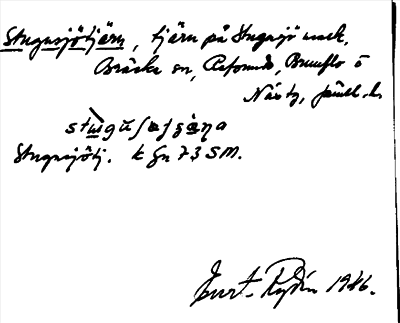 Stugusjötjärn, tjärn på Stugusjö mark,
Bräcke sn, Refsunds, Brunflo o
Näs tg, Jämtl. l.
Stugusjötj. k Gn 73 SM.
Kurt Rydin 1946.